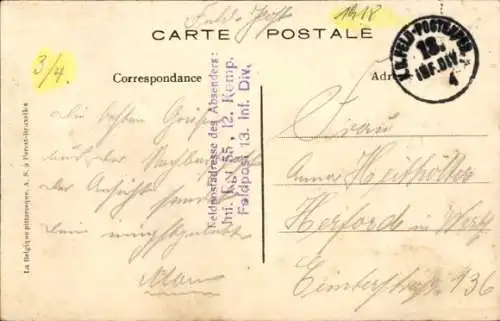 Feld-Post
1918
CARTE POSTALE
3/4
Correspondance
Adr
K.D. FELD-POSTEXPED.
13.
INF. DIV.
4
Feldpostadresse des Absenders:
Inf. Rgt. 55, 12. Komp.
Feldpost 13. Inf. Div.
Die besten Grüße
aus der
der Ansicht sendet
Dein
Frau
Heithölter
Herford in Westf
136
La Belgique pittoresque. A. S. à Forest-Bruxelles